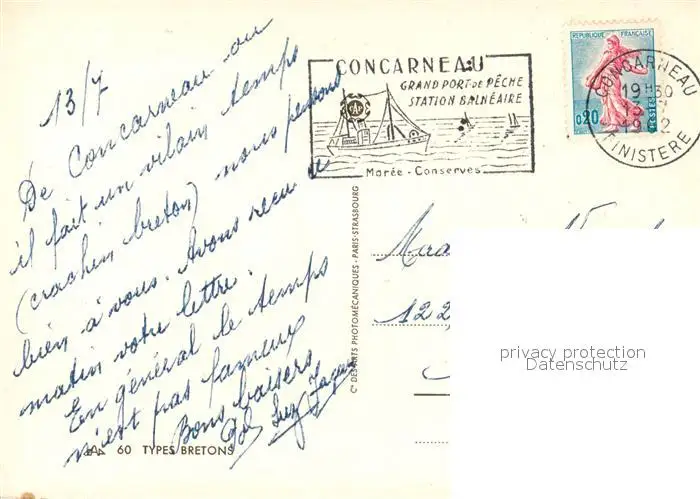 13/7
De Concarneau ou
il fait un vilain temps
(crachin breton) nous pensons
bien à vous. Avons reçu ce
matin votre lettre.
En général le temps
n'est pas fameux
Bons baisers
CONCARNEAU
GRAND PORT DE PÊCHE
STATION BALNÉAIRE
Marée - Conserves
REPUBLIQUE FRANÇAISE
0,20
POSTES
CONCARNEAU
19H30
FINISTERE
122
privacy protection
Datenschutz
Cie DES ARTS PHOTOMÉCANIQUES - PARIS-STRASBOURG
60 TYPES BRETONS